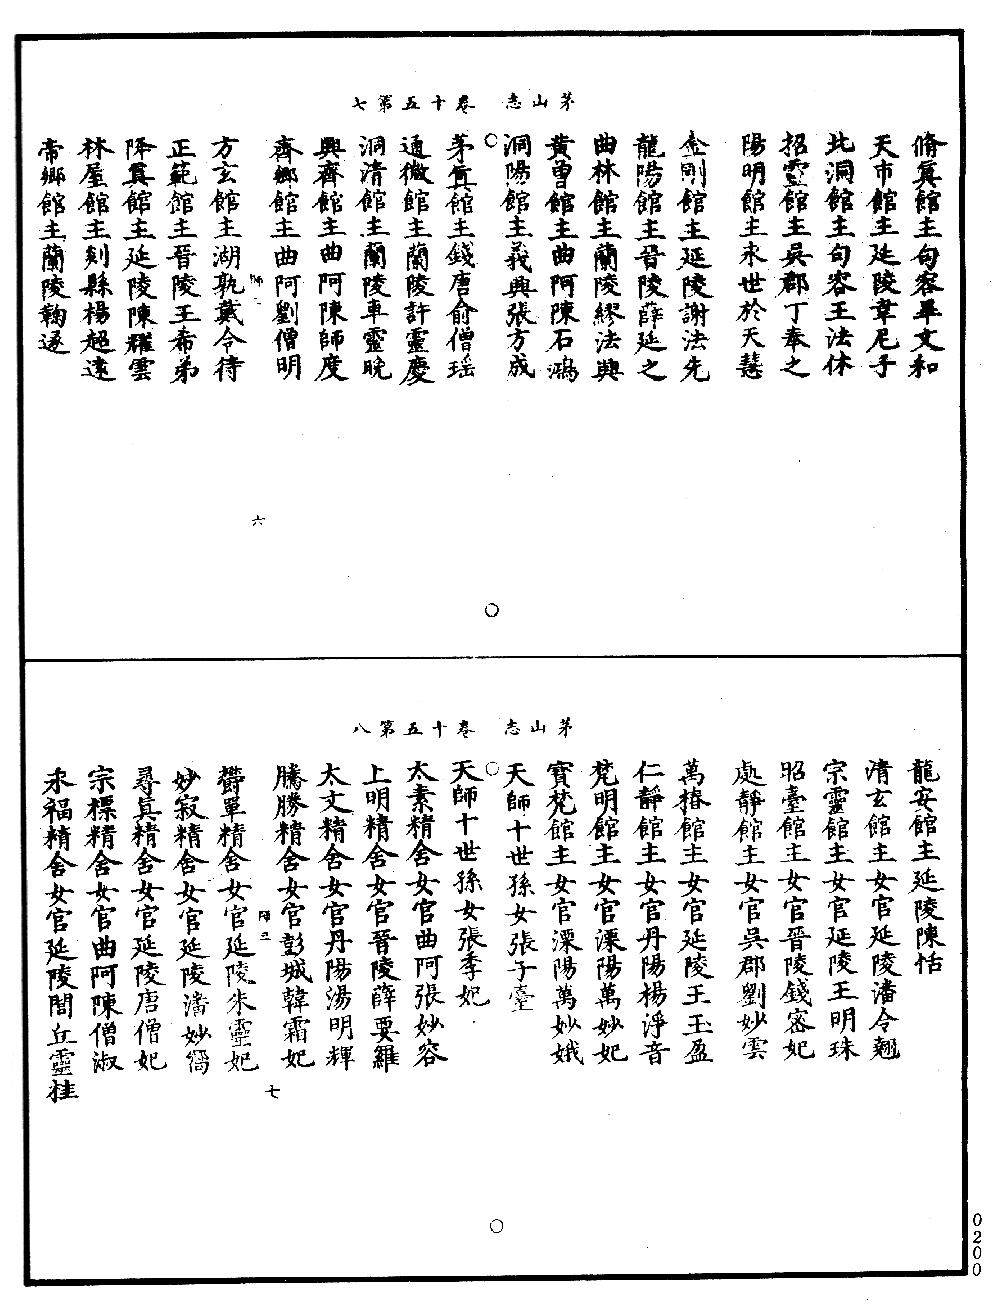 茅山志　卷十五第七
脩真館主句容畢文和
天市館主延陵韋尼子
北洞館主句容王法休
招靈館主吳郡丁奉之
陽明館主永世於天慧
金剛館主延陵謝法先
龍陽館主晉陵薛延之
曲林館主蘭陵繆法興
黃曾館主曲阿陳石鴻
洞陽館主義興張方成
茅真館主錢唐俞僧瑤
通微館主蘭陵許靈慶
洞清館主蘭陵車靈晚
興齊館主曲阿陳師度
齊鄉館主曲阿劉僧明
六
方玄館主湖孰戴令待
正範館主晉陵王希弟
降真館主延陵陳耀雲
林屋館主剡縣楊超遠
帝鄉館主蘭陵鞠遂
茅山志　卷十五第八
龍安館主延陵陳恬
清玄館主女官延陵潘令翹
宗靈館主女官延陵王明珠
昭臺館主女官晉陵錢密妃
處靜館主女官吳郡劉妙雲
萬椿館主女官延陵王玉盈
仁靜館主女官丹陽楊淨音
梵明館主女官溧陽萬妙妃
寶梵館主女官溧陽萬妙娥
天師十世孫女張子臺
天師十世孫女張季妃
太素精舍女官曲阿張妙容
上明精舍女官晉陵薛要羅
太文精舍女官丹陽湯明輝
騰勝精舍女官彭城韓霜妃
七
欝單精舍女官延陵朱靈妃
妙寂精舍女官延陵潘妙
尋真精舍女官延陵唐僧妃
宗標精舍女官曲阿陳僧淑
永福精舍女官延陵閭丘靈桂
0200